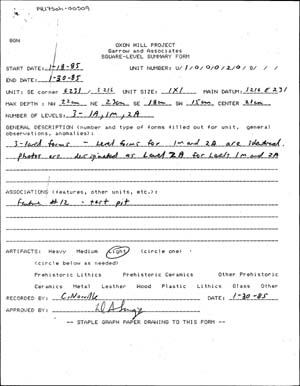 BON
OXON HILL PROJECT
Garrow and Associates
SQUARE-LEVEL SUMMARY FORM
START DATE: 1-18-85 UNIT NUMBER: U/1/0/0/0/2/0/0/ / /
END DATE: 1-30-85
UNIT: SE corner E231 / S216 UNIT SIZE: 1X1 MAIN DATUM: E231
MAX DEPTH: NW 22cm NE 23cm SE 18cm SW 15cm CENTER 21cm
NUMBER OF LEVELS: 3 - 1A, 1m, 2A
GENERAL DESCRIPTION (number and type of forms filled out for unit, general
observations, anomalies):
3-level forms - Level forms for 1m and 2A are identical.
photos are designated as Level 2A for levels 1m and 2A
ASSOCIATIONS (features, other units, etc.):
Feature #12 - test pit
ARTIFACTS: Heavy Medium Light (circle one)
(circle below as needed)
Prehistoric Lithics Prehistoric Ceramics Other Prehistoric
Ceramics Metal Leather Wood Plastic Lithics Glass Other
RECORDED BY: C. DATE: 1-30-85
APPROVED BY:
-- STAPLE GRAPH PAPER DRAWING TO THIS FORM --